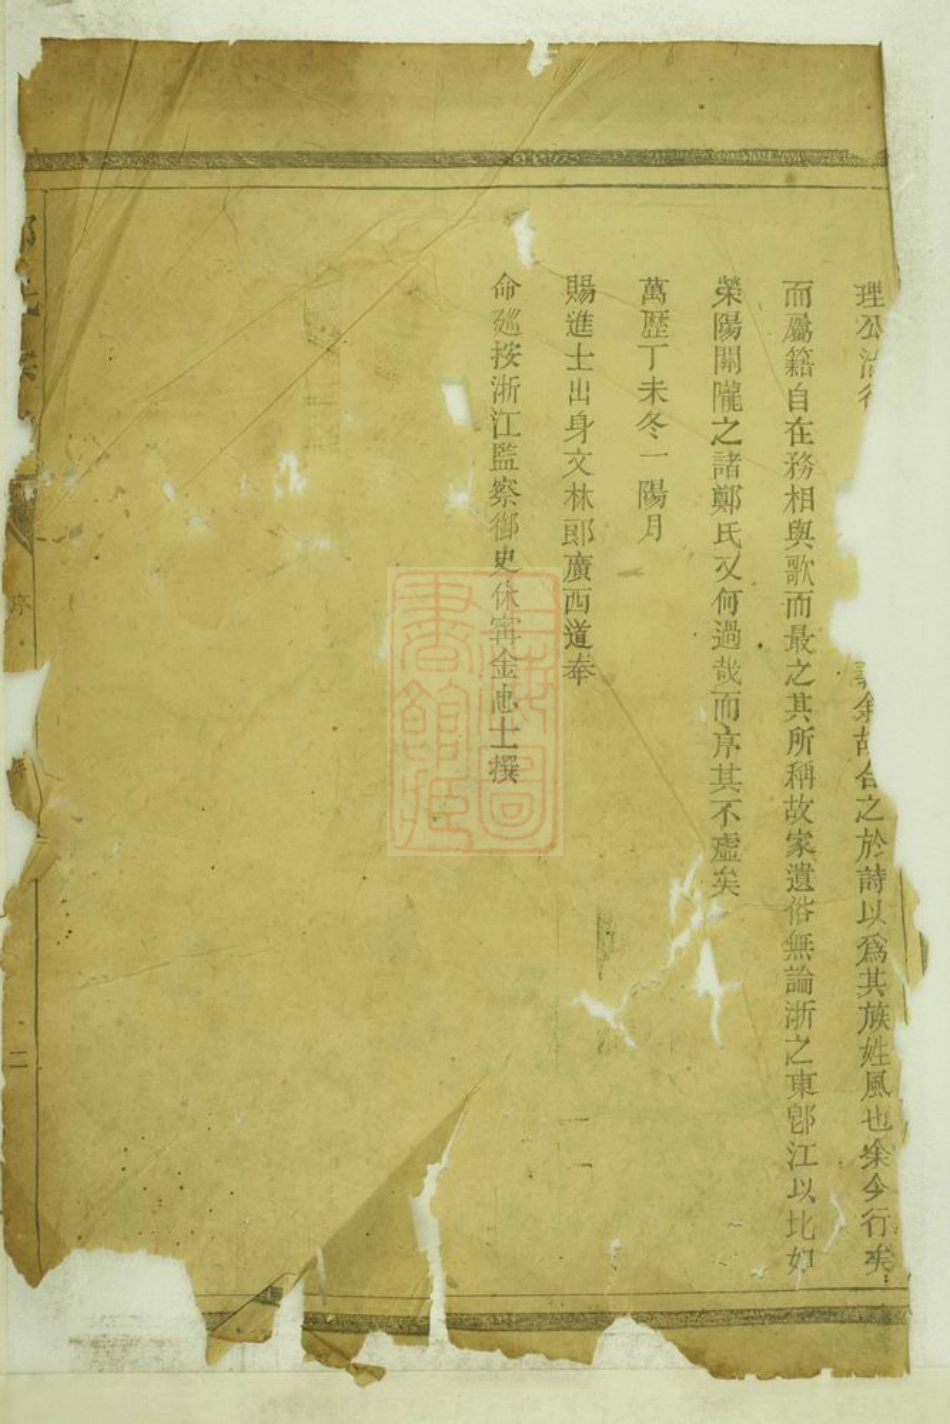 理公治
義余故合之於詩以為其族姓風也余今行矣
而屬籍自在務相與歌而最之其所稱故家遺俗無論浙之東卽江以北如
滎陽關隴之諸鄭氏又何過哉而序其不虛矣
萬歷丁未冬一陽月
賜進士出身文林郎廣西道奉
命廵按浙江監察御史休寗金忠士撰
序
二